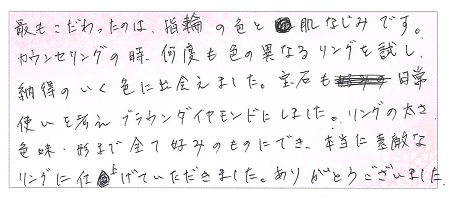 最もこだわったのは、指輪の色と肌なじみです。
カウンセリングの時、何度も色の異なるリングを試し、
納得のいく色に出会えました。宝石も日常
使いを考えブラウンダイヤモンドにしました。リングの太さ、
色味・形まで全て好みのものにでき、本当に素敵な
リングに仕上げていただきました。ありがとうございました。